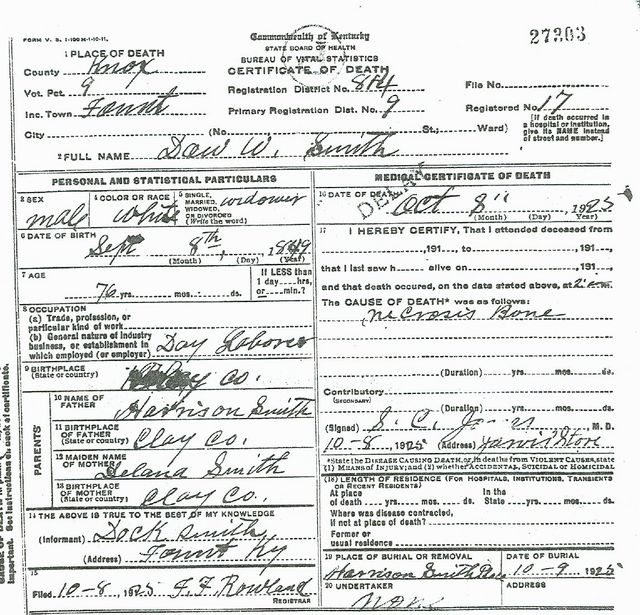 FORM V. S. 1-100M-1-10-11.
Commonwealth of Kentucky
27303
STATE BOARD OF HEALTH
BUREAU OF VITAL STATISTICS
CERTIFICATE OF DEATH
1 PLACE OF DEATH
County Knox
Vot. Pct. 9
Registration District No. 814
File No.
Inc. Town Fount
Primary Registration Dist. No. 9
Registered No. 17
City (No. St.; Ward)
[If death occurred in a hospital or institution, give its NAME instead of street and number.]
2 FULL NAME Dow W. Smith
PERSONAL AND STATISTICAL PARTICULARS
3 SEX male
4 COLOR OR RACE white
5 SINGLE, MARRIED, WIDOWED, OR DIVORCED (Write the word) widower
6 DATE OF BIRTH Sept 8th, 1849
(Month) (Day) (Year)
7 AGE 76 yrs. mos. ds.
If LESS than 1 day hrs. or min.?
8 OCCUPATION
(a) Trade, profession, or particular kind of work
(b) General nature of industry business, or establishment in which employed (or employer) Day Laborer
9 BIRTHPLACE (State or country) Clay Co.
PARENTS
10 NAME OF FATHER Harrison Smith
11 BIRTHPLACE OF FATHER (State or country) Clay Co.
12 MAIDEN NAME OF MOTHER Smith
13 BIRTHPLACE OF MOTHER (State or country) Clay Co.
14 THE ABOVE IS TRUE TO THE BEST OF MY KNOWLEDGE
(Informant) Dock Smith
(Address) Fount Ky
15
Filed 10-8 1925 F. F. Rowland
REGISTRAR
MEDICAL CERTIFICATE OF DEATH
DELAYED
16 DATE OF DEATH Oct 8" 1925
(Month) (Day) (Year)
17 I HEREBY CERTIFY, That I attended deceased from
191 , to 191 ,
that I last saw h alive on 191 ,
and that death occured, on the date stated above, at 2 m.
The CAUSE OF DEATH* was as follows:
necrosis Bone
(Duration) yrs. mos. ds.
Contributory
(SECONDARY)
(Duration) yrs. mos. ds.
(Signed) S. C. M. D.
10-8, 1925 (Address) Jarvis Store
*State the DISEASE CAUSING DEATH, or, in deaths from VIOLENT CAUSES, state
(1) MEANS OF INJURY; and (2) whether ACCIDENTAL, SUICIDAL or HOMICIDAL
(18) LENGTH OF RESIDENCE (FOR HOSPITALS, INSTITUTIONS, TRANSIENTS OR RECENT RESIDENTS)
At place of death yrs. mos. ds. In the State yrs. mos. ds.
Where was disease contracted, if not at place of death?
Former or usual residence
19 PLACE OF BURIAL OR REMOVAL Harrison Smith
DATE OF BURIAL 10-9 1925
20 UNDERTAKER none
ADDRESS
important. See instructions on back of certificate.